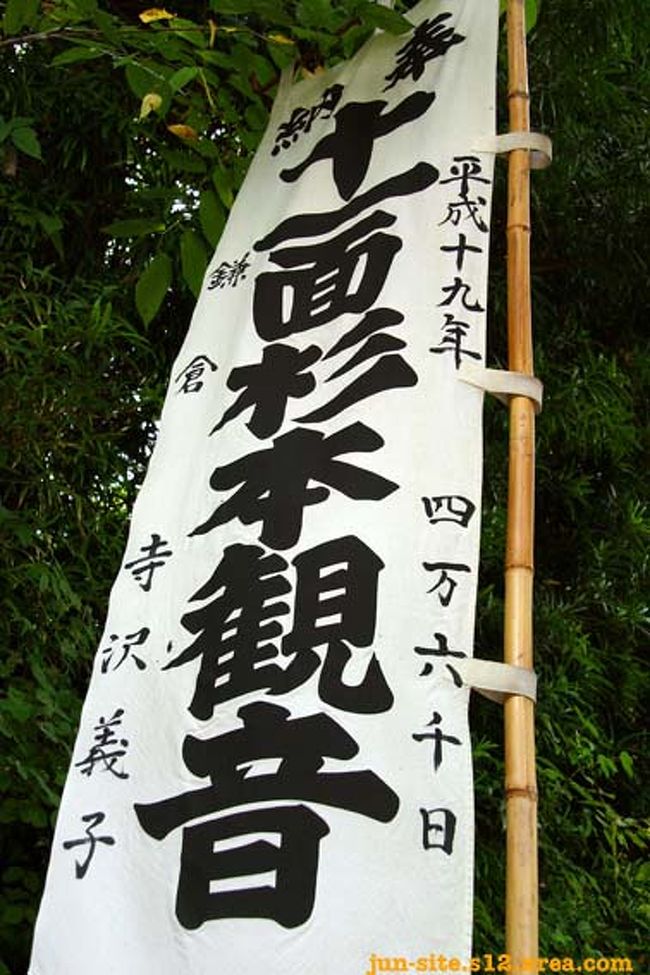 奉納
平成十九年 四万六千日
十一面杉本観音
鎌倉 寺沢義子
jun-site.s12.xrea.com